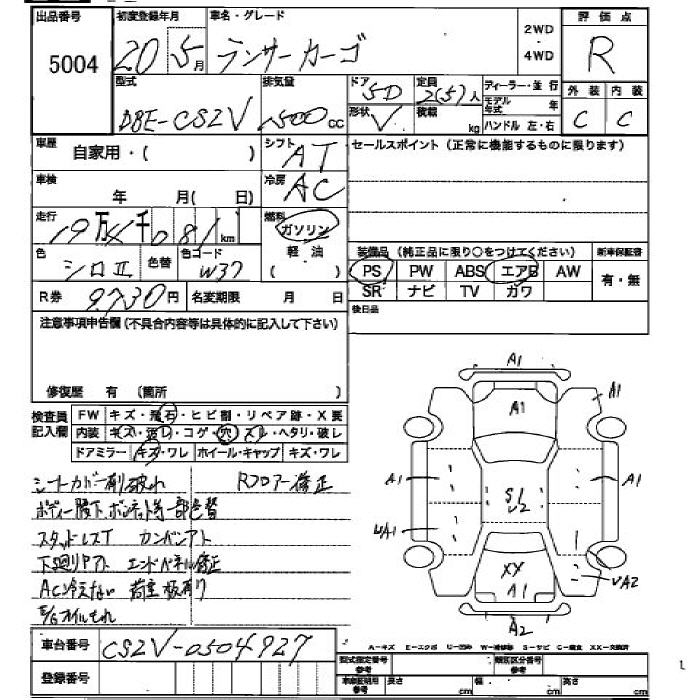 出品番号 初度登録年月 車名・グレード 2WD ・ 4WD 評価点
5004 20 5月 ランサーカーゴ R
型式 排気量 ドア 5D 定員 2(5)人 ディーラー・並行 外装 内装
DBE-CS2V 1500cc 形状 V 積載 kg モデル年式 年 ハンドル 左・右 C C
車歴 自家用・( ) シフト AT セールスポイント(正常に機能するものに限ります)
車検 年 月( 日) 冷房 AC
走行 19万4千081km 燃料 ガソリン 軽・油 ( )
装備品(純正品に限り○をつけてください) 新車保証書
色 シロⅡ 色替 色コード W37 PS PW ABS エアB AW 有・無
R券 9,730円 名変期限 月 日 SR ナビ TV ガワ
注意事項申告欄(不具合内容等は具体的に記入して下さい) 後日品
修復歴 有 (箇所 )
検査員記入欄 FW キズ・飛石・ヒビ割・リペア跡・X要
内装 キズ・汚レ・コゲ・穴・スレ・ヘタリ・破レ
ドアミラー キズ・ワレ ホイール・キャップ キズ・ワレ
シートカバー有破れ Rフロアー修正
ボディー股下、ボンネット等一部色替
スタッドレスT カンバンアト
下廻りサクト エンドパネル修正
AC冷えない 荷室板有り
E/Gオイルもれ
A1
A1
A1
A1
A1
S1
U2
UA1
XY
A1
UA2
A2
A-キズ E-エクボ U-凹み W-補修跡 S-サビ C-腐食 XX-交換済
車台番号 CS2V-0504927
型式指定番号 参考 類別区分番号 参考
登録番号 車庫証明用 参考 長さ cm 幅 cm 高さ cm